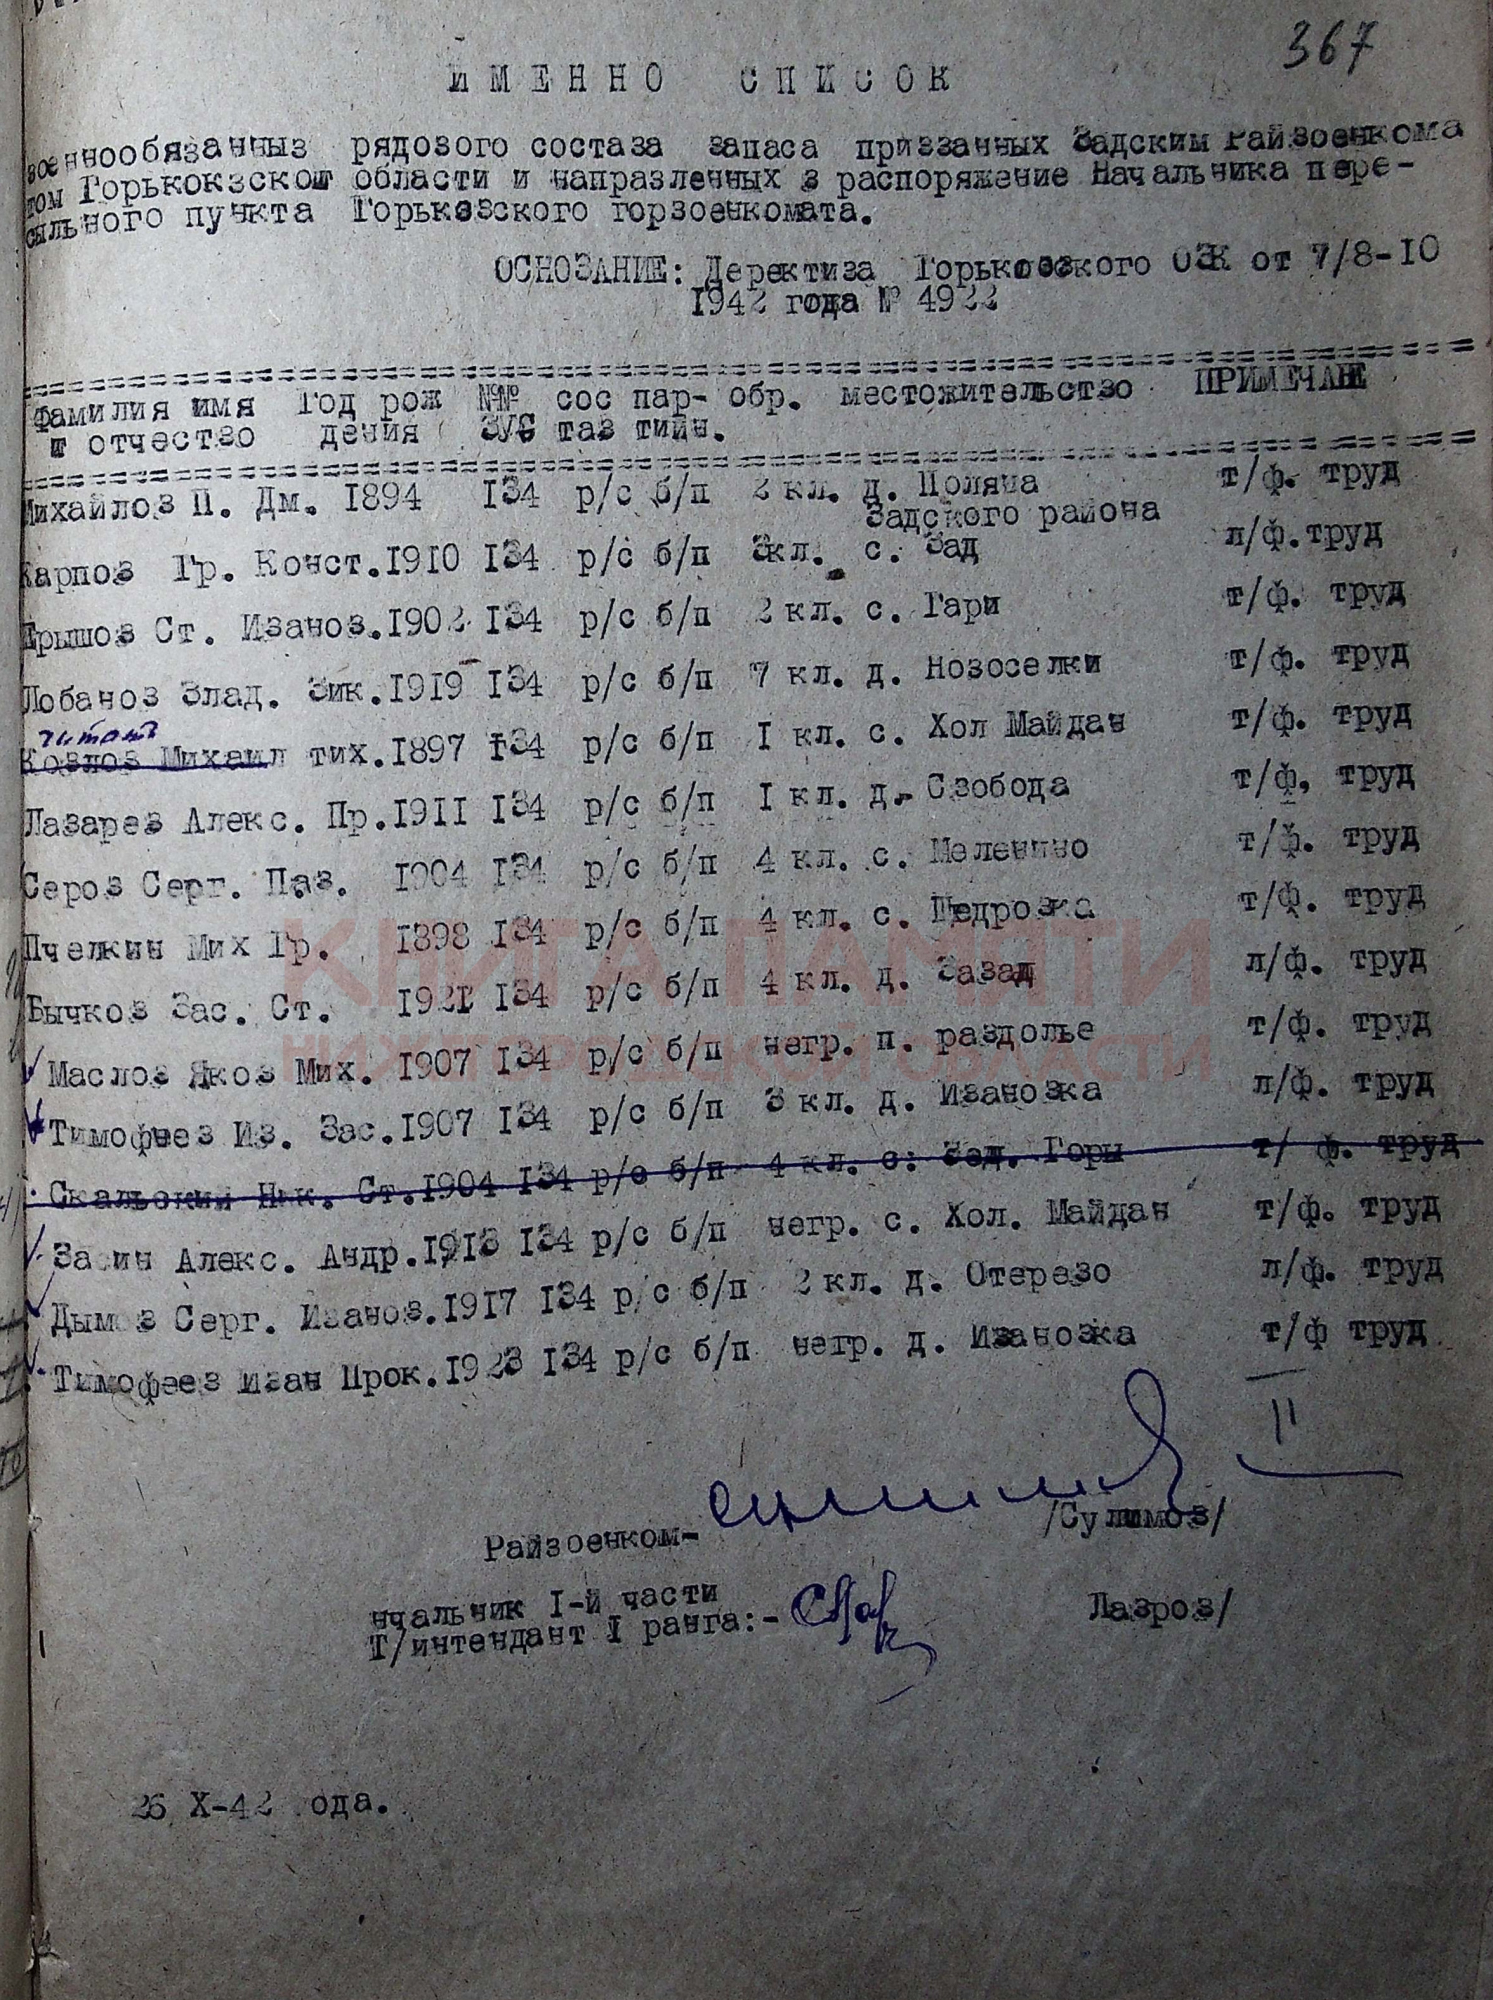 367
ИМЕННО СПИСОК
военнообязанныз рядового состаза запаса призванных Задским Райзоенкома
том Горькокзской области и напразленных з распоряжение Начальника пере-
сыльного пункта Горькозского горзоенкомата.
ОСНОЗАНИЕ: Деректиза Горькозского ОЗК от 7/8-10
1942 года № 4922
Фамилия имя Год рож №№ сос пар- обр. местожительстзо ПРИМЕЧАНЕ
и отчестзо дения ЗУС таз тийн.
Михайлоз П. Дм. 1894 134 р/с б/п 2 кл. д. Поляна т/ф. труд
Задского района
Карпоз Гр. Конст. 1910 134 р/с б/п 3кл. с. Зад л/ф. труд
Ст. Изаноз. 1902 134 р/с б/п 2 кл. с. Гари т/ф. труд
Лобаноз Злад. Зик. 1919 134 р/с б/п 7 кл. д. Нозоселки т/ф. труд
Козлоз Михаил тих. 1897 134 р/с б/п 1 кл. с. Хол Майдан т/ф. труд
Лазарез Алекс. Пр. 1911 134 р/с б/п 1 кл. д. Слобода т/ф, труд
Сероз Серг. Паз. 1904 134 р/с б/п 4 кл. с. Меленино т/ф. труд
Пчелкин Мих Гр. 1898 134 р/с б/п 4 кл. с. т/ф. труд
Бычкоз Зас. Ст. 1921 134 р/с б/п 4 кл. д. Зазад л/ф. труд
Маслоз Якоз Мих. 1907 134 р/с б/п негр. п. раздолье т/ф. труд
Тимофеез Из. Зас. 1907 134 р/с б/п 3 кл. д. Изанозка л/ф. труд
Скальский Ник. Ст. 1904 134 р/с б/п 4 кл. с: Зад. Горы т/ ф. труд
Засин Алекс. Андр. 1913 134 р/с б/п негр. с. Хол. Майдан т/ф. труд
Дымоз Серг. Изаноз. 1917 134 р/с б/п 2 кл. д. Отерезо л/ф. труд
Тимофеез Изан Прок. 1923 134 р/с б/п негр. д. Изанозка т/ф труд
11
Райзоенком- /Сулимоз/
нчальник I-й части
Т/интендант I ранга:- Лазроз/
26 X-42 ода.
КНИГА ПАМЯТИ
НИЖЕГОРОДСКОЙ ОБЛАСТИ